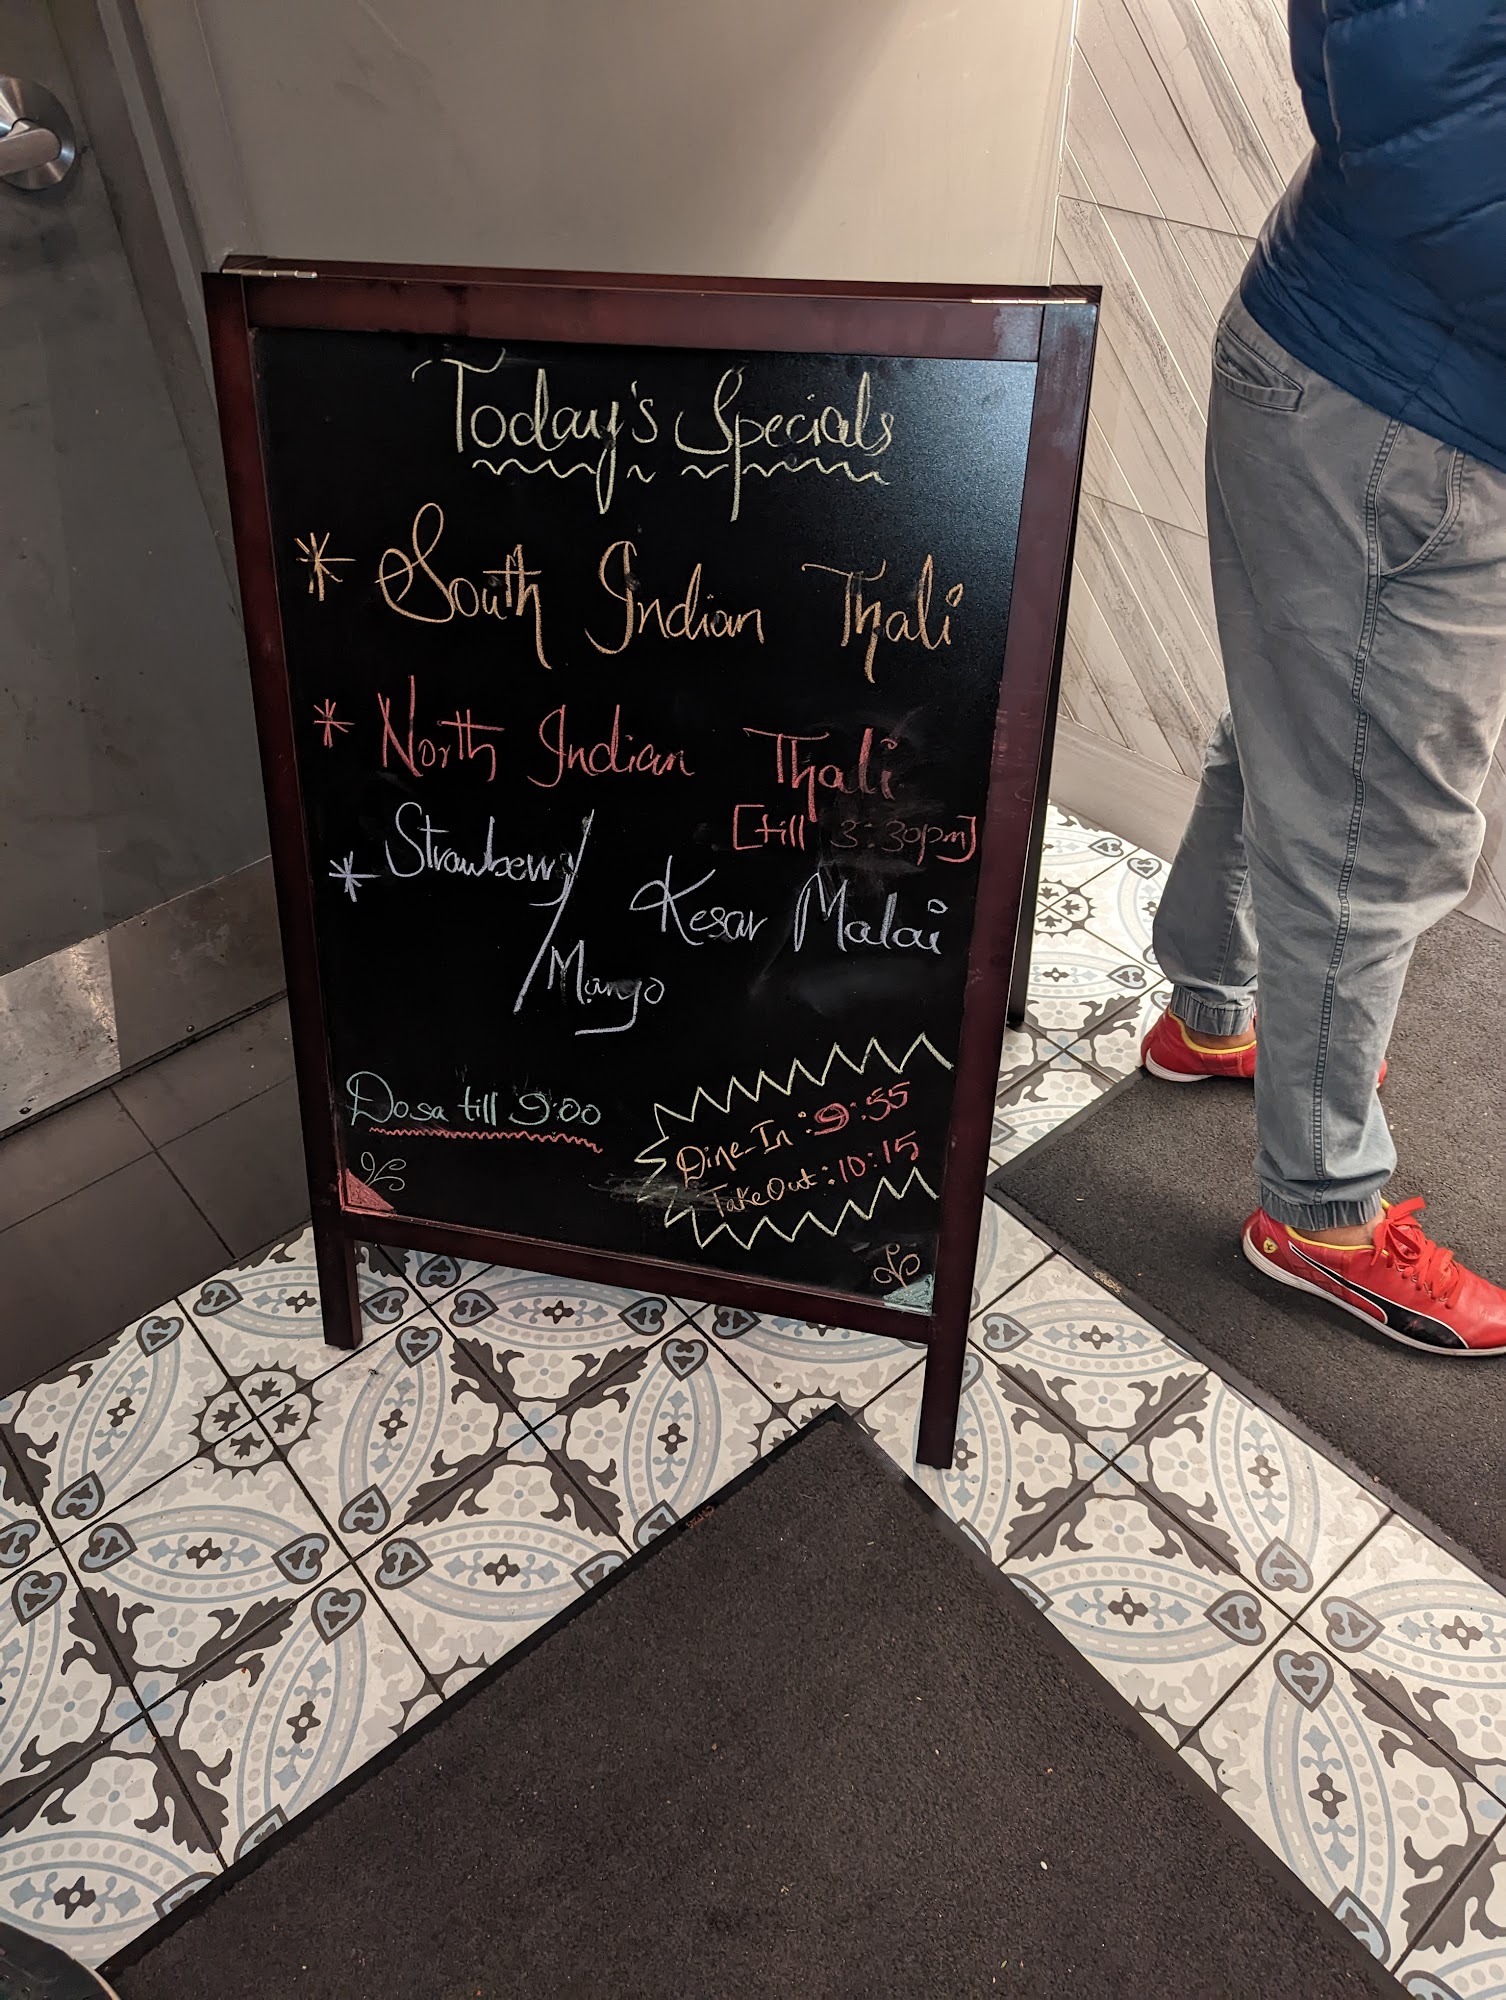 Today's Specials
* South Indian Thali
* North Indian Thali
[till 3:30pm]
* Strawberry/
Kesar Malai
Mango
Dosa till 9:00
Dine-In : 9:55
TakeOut : 10:15